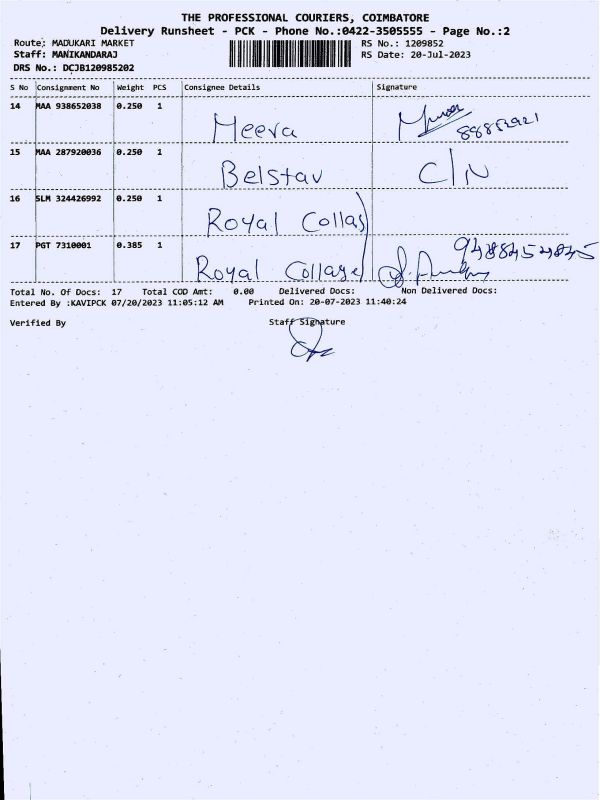 THE PROFESSIONAL COURIERS, COIMBATORE
Delivery Runsheet - PCK - Phone No.:0422-3505555 - Page No.:2
Route: MADUKARI MARKET RS No.: 1209852
Staff: MANIKANDARAJ RS Date: 20-Jul-2023
DRS No.: DCJB120985202
S No Consignment No Weight PCS Consignee Details Signature
14 MAA 938652038 0.250 1 Meeva
15 MAA 287920036 0.250 1 Belstav C/N
16 SLM 324426992 0.250 1 Royal Collas
17 PGT 7310001 0.385 1 Royal Collage
Total No. Of Docs: 17 Total COD Amt: 0.00 Delivered Docs: Non Delivered Docs:
Entered By :KAVIPCK 07/20/2023 11:05:12 AM Printed On: 20-07-2023 11:40:24
Verified By Staff Signature